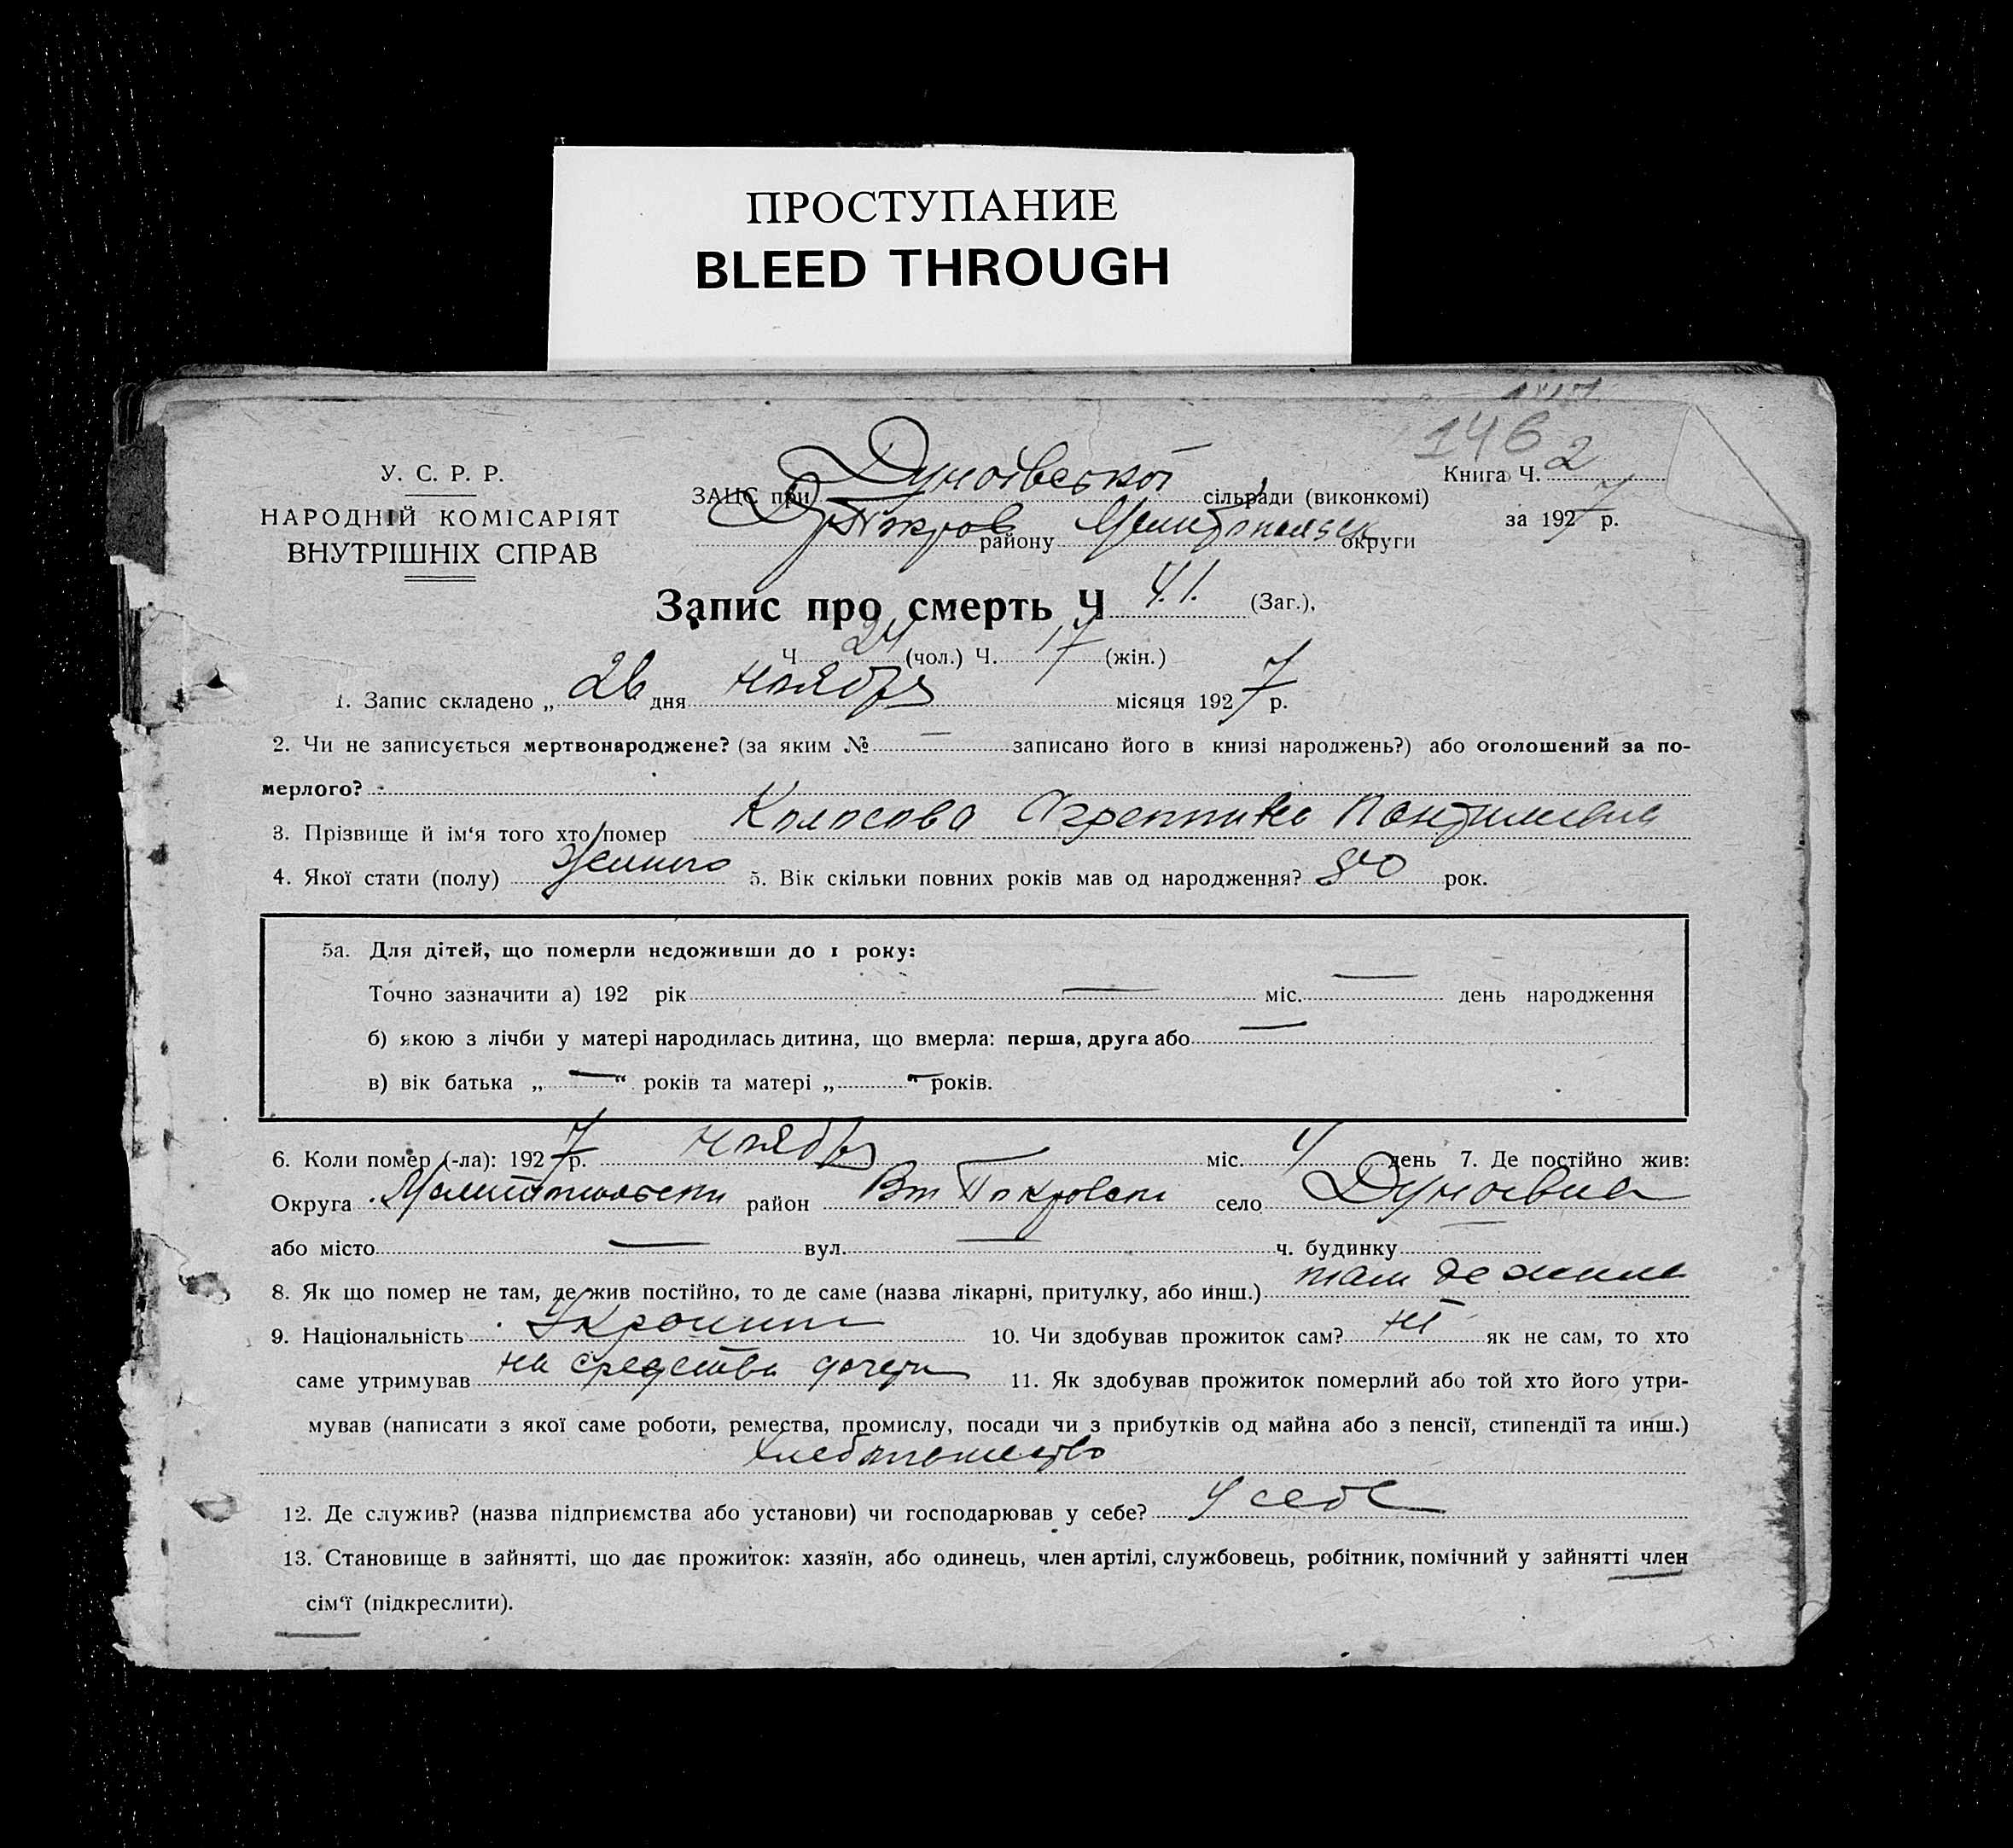 ПРОСТУПАНИЕ
BLEED THROUGH
146
У. С. Р. Р.
НАРОДНІЙ КОМІСАРІЯТ
ВНУТРІШНІХ СПРАВ
Книга Ч. 2
за 1927 р.
ЗАЦС при Дунаівської сільради (виконкомі)
Покров району округи
Запис про смерть Ч 41. (Заг.),
Ч 24 (чол.) Ч. 17 (жін.)
1. Запис складено „ 26 дня ноября місяця 1927 р.
2. Чи не записується мертвонароджене? (за яким № — записано його в книзі народжень?) або оголошений за по-
мерлого? -
3. Прізвище й ім‘я того хто помер Колосова
4. Якої стати (полу) 5. Вік скільки повних років мав од народження? 80 рок.
5а. Для дітей, що померли недоживши до 1 року:
Точно зазначити а) 192 рік — міс. — день народження
б) якою з лічби у матері народилась дитина, що вмерла: перша, друга або —
в) вік батька „ — “ років та матері „ — “ років.
6. Коли помер (-ла): 1927 р. ноября міс. 4 день 7. Де постійно жив:
Округа район Покровськ село Дунаівка
або місто — вул. — ч. будинку —
8. Як що помер не там, де жив постійно, то де саме (назва лікарні, притулку, або инш.) там де жила
9. Національність 10. Чи здобував прожиток сам? ні як не сам, то хто
саме утримував на средства дочери 11. Як здобував прожиток померлий або той хто його утри-
мував (написати з якої саме роботи, ремества, промислу, посади чи з прибутків од майна або з пенсії, стипендії та инш.)
хлебопашество
12. Де служив? (назва підприємства або установи) чи господарював у себе? У себе
13. Становище в зайнятті, що дає прожиток: хазяїн, або одинець, член артілі, службовець, робітник, помічний у зайнятті член
сім‘ї (підкреслити).